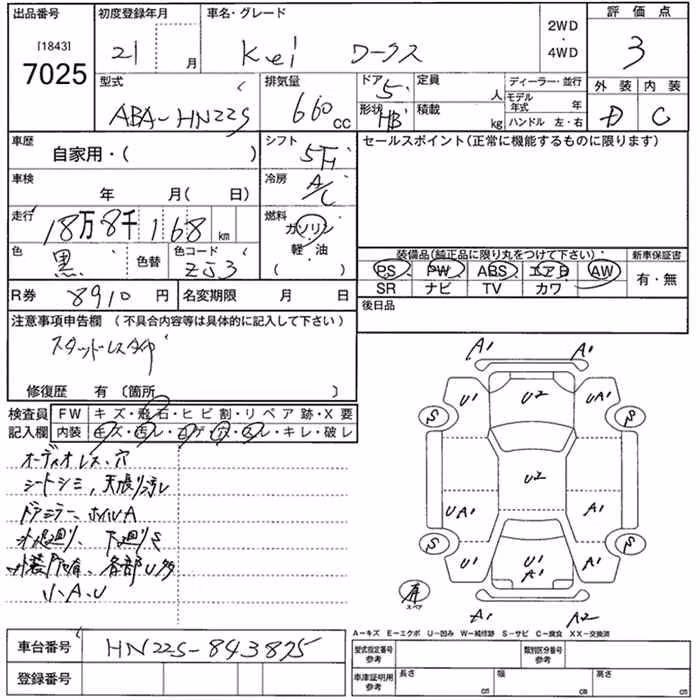 出品番号 初度登録年月 車名・グレード 2WD 評価点
[1843] 21 月 Kei ワークス ・ 3
7025 4WD
型式 排気量 ドア 5 定員 人 ディーラー・並行 外装 内装
ABA-HN22S 660 cc 形状 HB 積載 kg モデル年式 年 D C
ハンドル 左・右
車歴 シフト セールスポイント(正常に機能するものに限ります)
自家用・( ) 5F
車検 冷房
年 月( 日) A/C
走行 燃料
18万8千168 km ガソリン
色 色替 色コード 軽・油 装備品(純正品に限り丸をつけて下さい) 新車保証書
黒 ZJ3 ( ) PS PW ABS エアB AW 有・無
R券 8910 円 名変期限 月 日 SR ナビ TV カワ
注意事項申告欄(不具合内容等は具体的に記入して下さい) 後日品
スタッドレスタイヤ
修復歴 有〔箇所 〕
検査員 FW キズ・飛石・ヒビ割・リペア跡・X要
記入欄 内装 キズ・汚レ・コゲ・穴・スレ・キレ・破レ
オーディオレス、穴
シートシミ、天張り汚レ
ドアミラー、ホイルA
下廻りS
各部U多
小A、U
A1 A1
U1 U2 UA1
S S
U2
UA1 A1
S S
U1 U1 A1 A1
有
スペア
A1 A2
A-キズ E-エクボ U-凹み W-補修跡 S-サビ C-腐食 XX-交換済
車台番号 HN22S-843875 型式指定番号 参考 類別区分番号 参考
登録番号 車庫証明用 参考 長さ cm 幅 cm 高さ cm